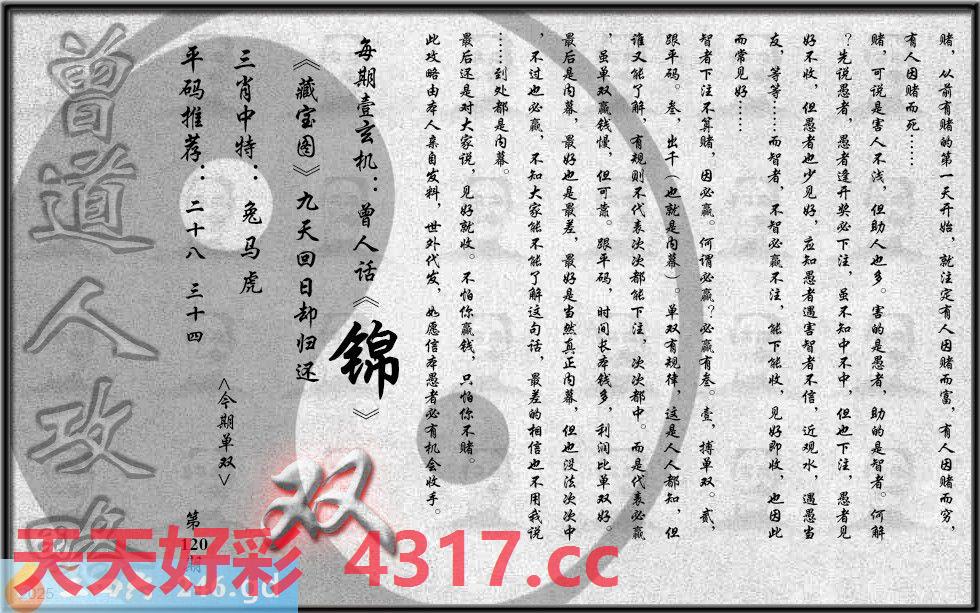 赌，从前有赌的第一天开始，就注定有人因赌而富，有人因赌而穷，
有人因赌而死……
赌，可说是害人不浅，但助人也多。害的是愚者，助的是智者。何解
？先说愚者，愚者逢开奖必下注，虽不知中不中，但也下注，愚者见
好不收，但愚者也少见好，应知愚者遇害智者不信，近观水，遇愚当
友，等等……而智者，不智必赢不注，能下能收，见好即收，也因此
而常见好……
智者下注不算赌，因必赢。何谓必赢？必赢有叁。壹，搏单双。贰，
跟平码。叁，出千（也就是内幕）。单双有规律，这是人人都知，但
谁又能了解，有规则不代表次次都能下注，次次都中。而是代表必赢
，虽单双赢钱慢，但可靠。跟平码，时间长本钱多，利润比单双好。
最后是内幕，最好也是最差，最好是当然真正内幕，但也没法次次中
，不过也必赢，不知大家能不能了解这句话，最差的相信也不用我说
……到处都是内幕。
最后还是对大家说，见好就收。不怕你赢钱，只怕你不赌。
此攻略由本人亲自发料，世外代发，如愿信本愚者必有机会收手。
每期壹玄机：曾人话《锦》
《藏宝图》九天回日却归还
三肖中特：兔马虎
平码推荐：二十八 三十四
<今期单双>
双
第
120
期
曾道人攻略
天天好彩 4317.cc
2025